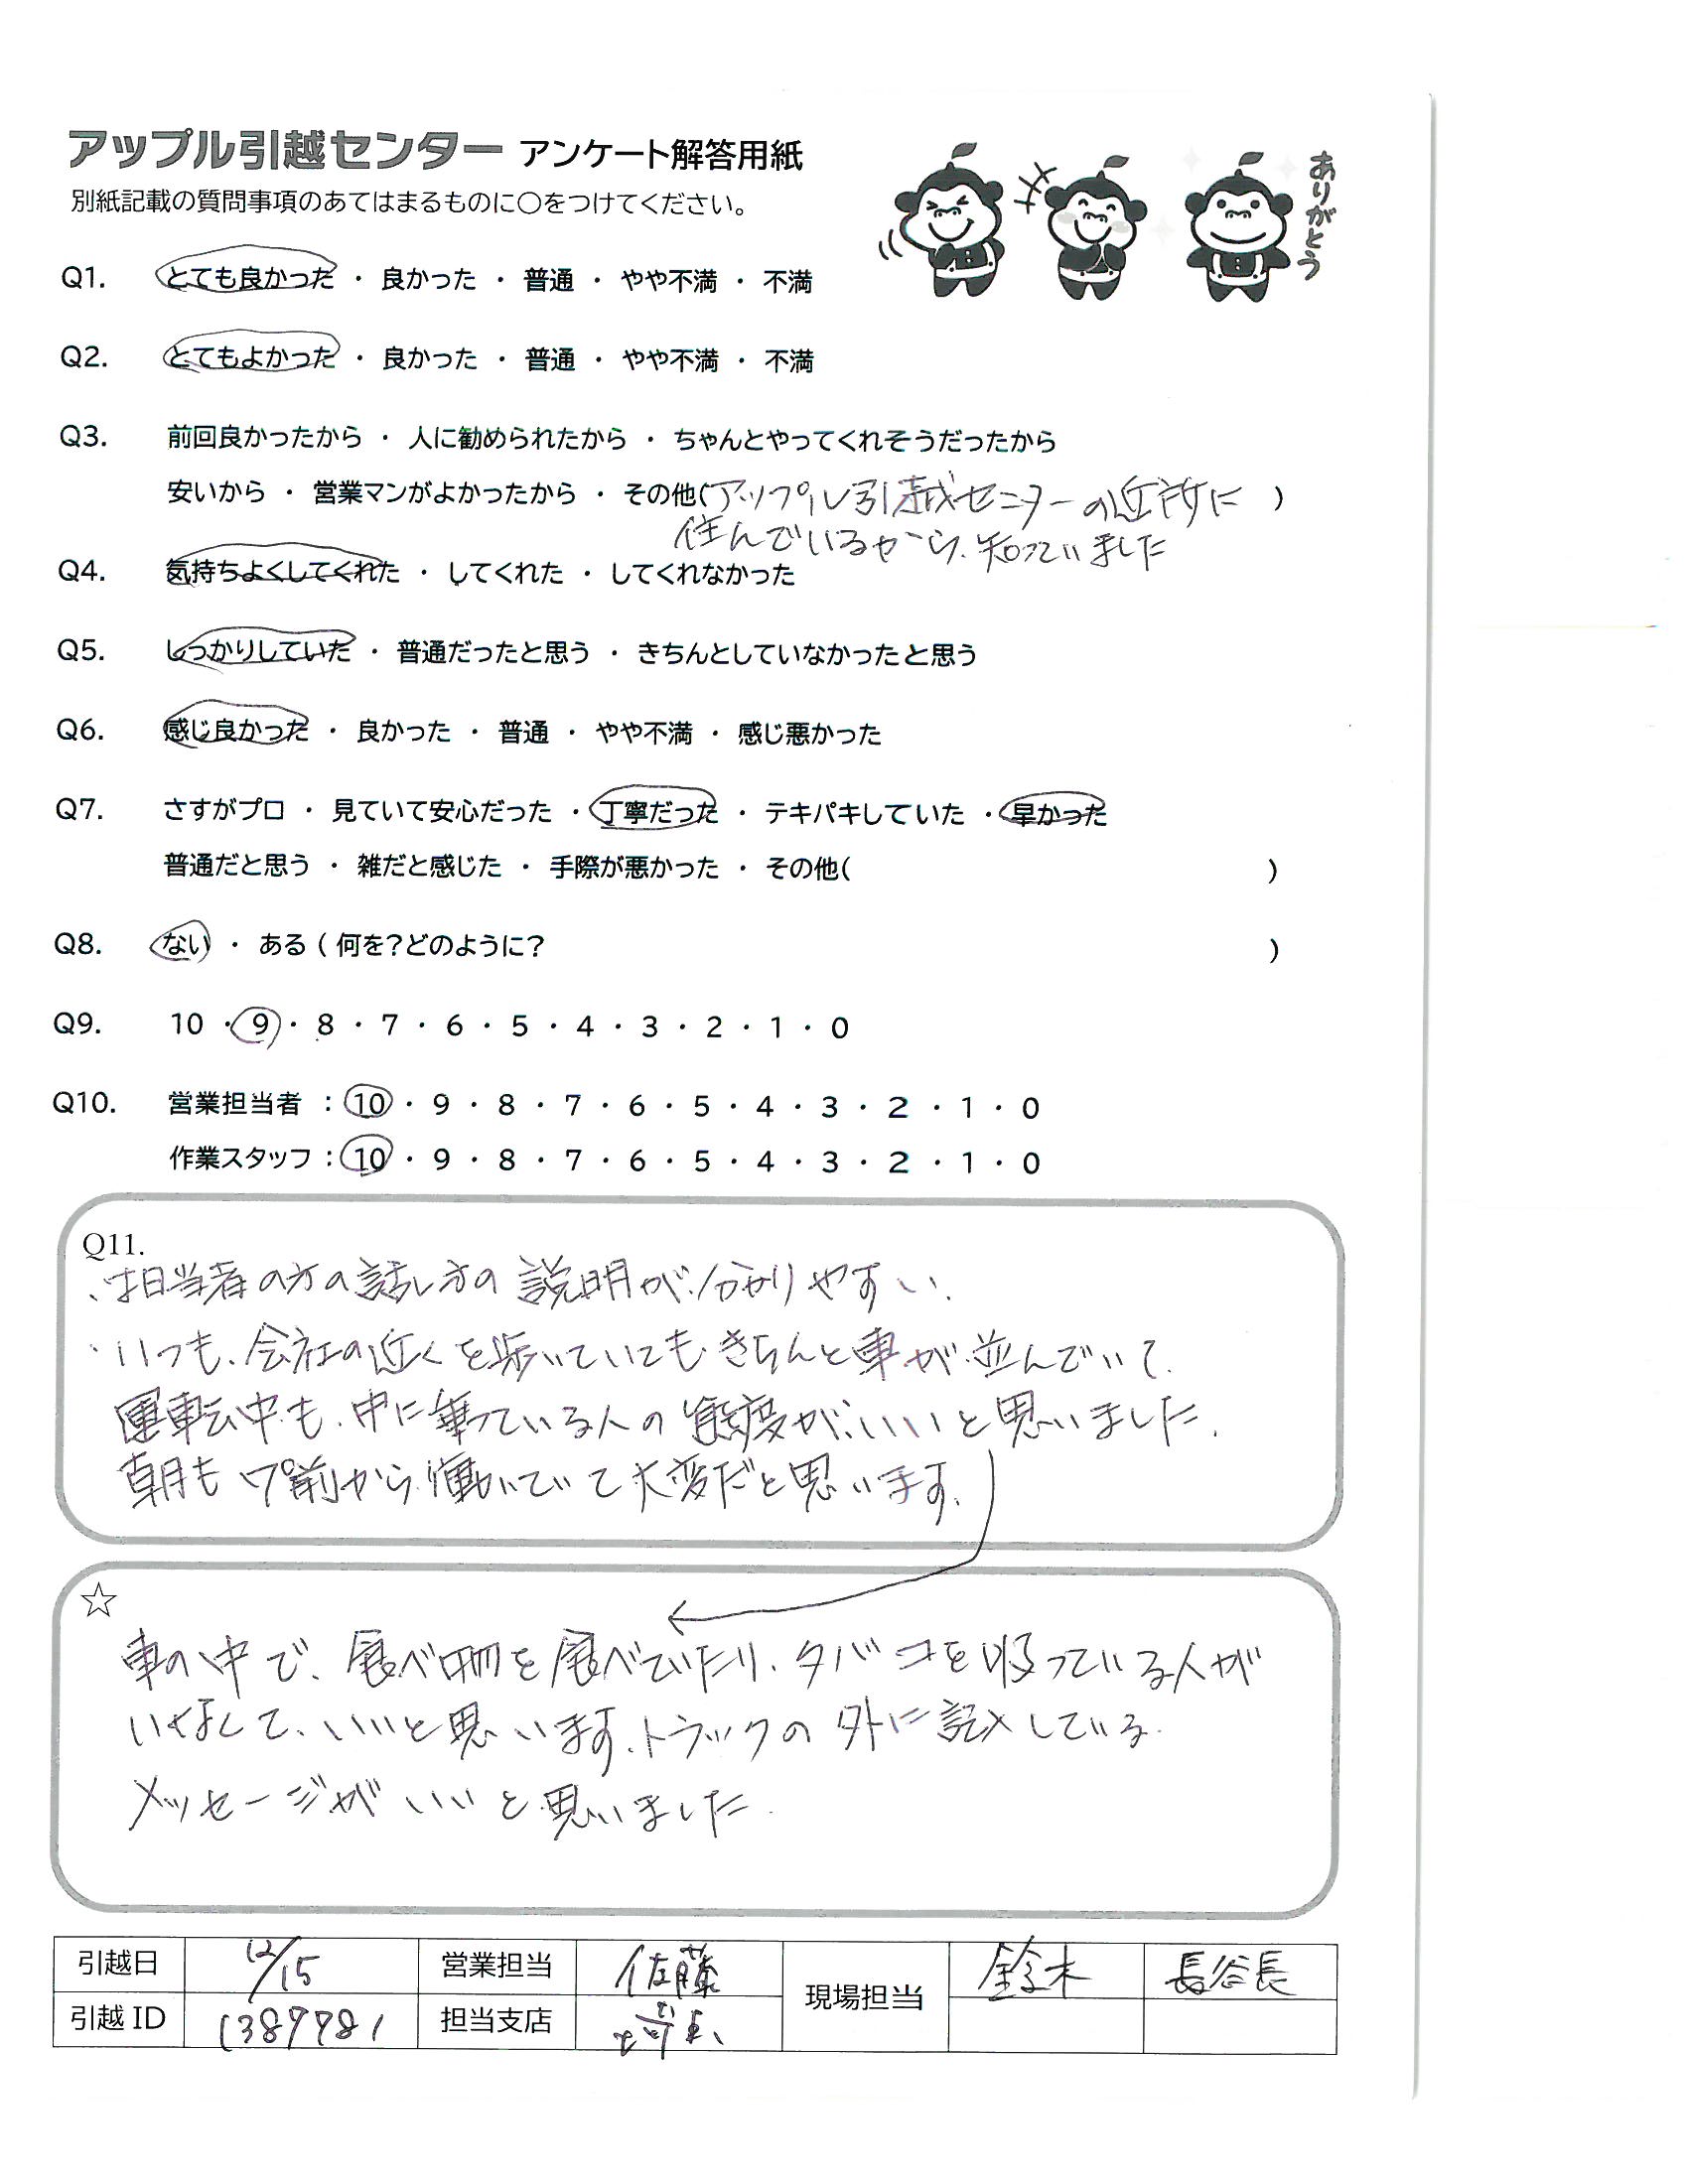 アップル引越センター アンケート解答用紙
別紙記載の質問事項のあてはまるものに○をつけてください。
ありがとう
Q1. とても良かった ・ 良かった ・ 普通 ・ やや不満 ・ 不満
Q2. とてもよかった ・ 良かった ・ 普通 ・ やや不満 ・ 不満
Q3. 前回良かったから ・ 人に勧められたから ・ ちゃんとやってくれそうだったから
安いから ・ 営業マンがよかったから ・ その他(アップル引越センターの近所に )
住んでいるから、知っていました
Q4. 気持ちよくしてくれた ・ してくれた ・ してくれなかった
Q5. しっかりしていた ・ 普通だったと思う ・ きちんとしていなかったと思う
Q6. 感じ良かった ・ 良かった ・ 普通 ・ やや不満 ・ 感じ悪かった
Q7. さすがプロ ・ 見ていて安心だった ・ 丁寧だった ・ テキパキしていた ・ 早かった
普通だと思う ・ 雑だと感じた ・ 手際が悪かった ・ その他( )
Q8. ない ・ ある ( 何を?どのように? )
Q9. 10 ・ 9 ・ 8 ・ 7 ・ 6 ・ 5 ・ 4 ・ 3 ・ 2 ・ 1 ・ 0
Q10. 営業担当者 : 10 ・ 9 ・ 8 ・ 7 ・ 6 ・ 5 ・ 4 ・ 3 ・ 2 ・ 1 ・ 0
作業スタッフ : 10 ・ 9 ・ 8 ・ 7 ・ 6 ・ 5 ・ 4 ・ 3 ・ 2 ・ 1 ・ 0
Q11.
・担当者の方の話し方の説明が分かりやすい.
・いつも、会社の近くを歩いていてもきちんと車が並んでいて.
運転中も、中に乗っている人の態度がいいと思いました.
朝も 前から働いていて大変だと思います.
☆
車の中で、食べ物を食べていたり、タバコを吸っている人が
いなくて、いいと思います.トラックの外に記入している.
メッセージがいいと思いました.
引越日 12/15 営業担当 佐藤 現場担当 鈴木 長谷長
引越 ID 担当支店